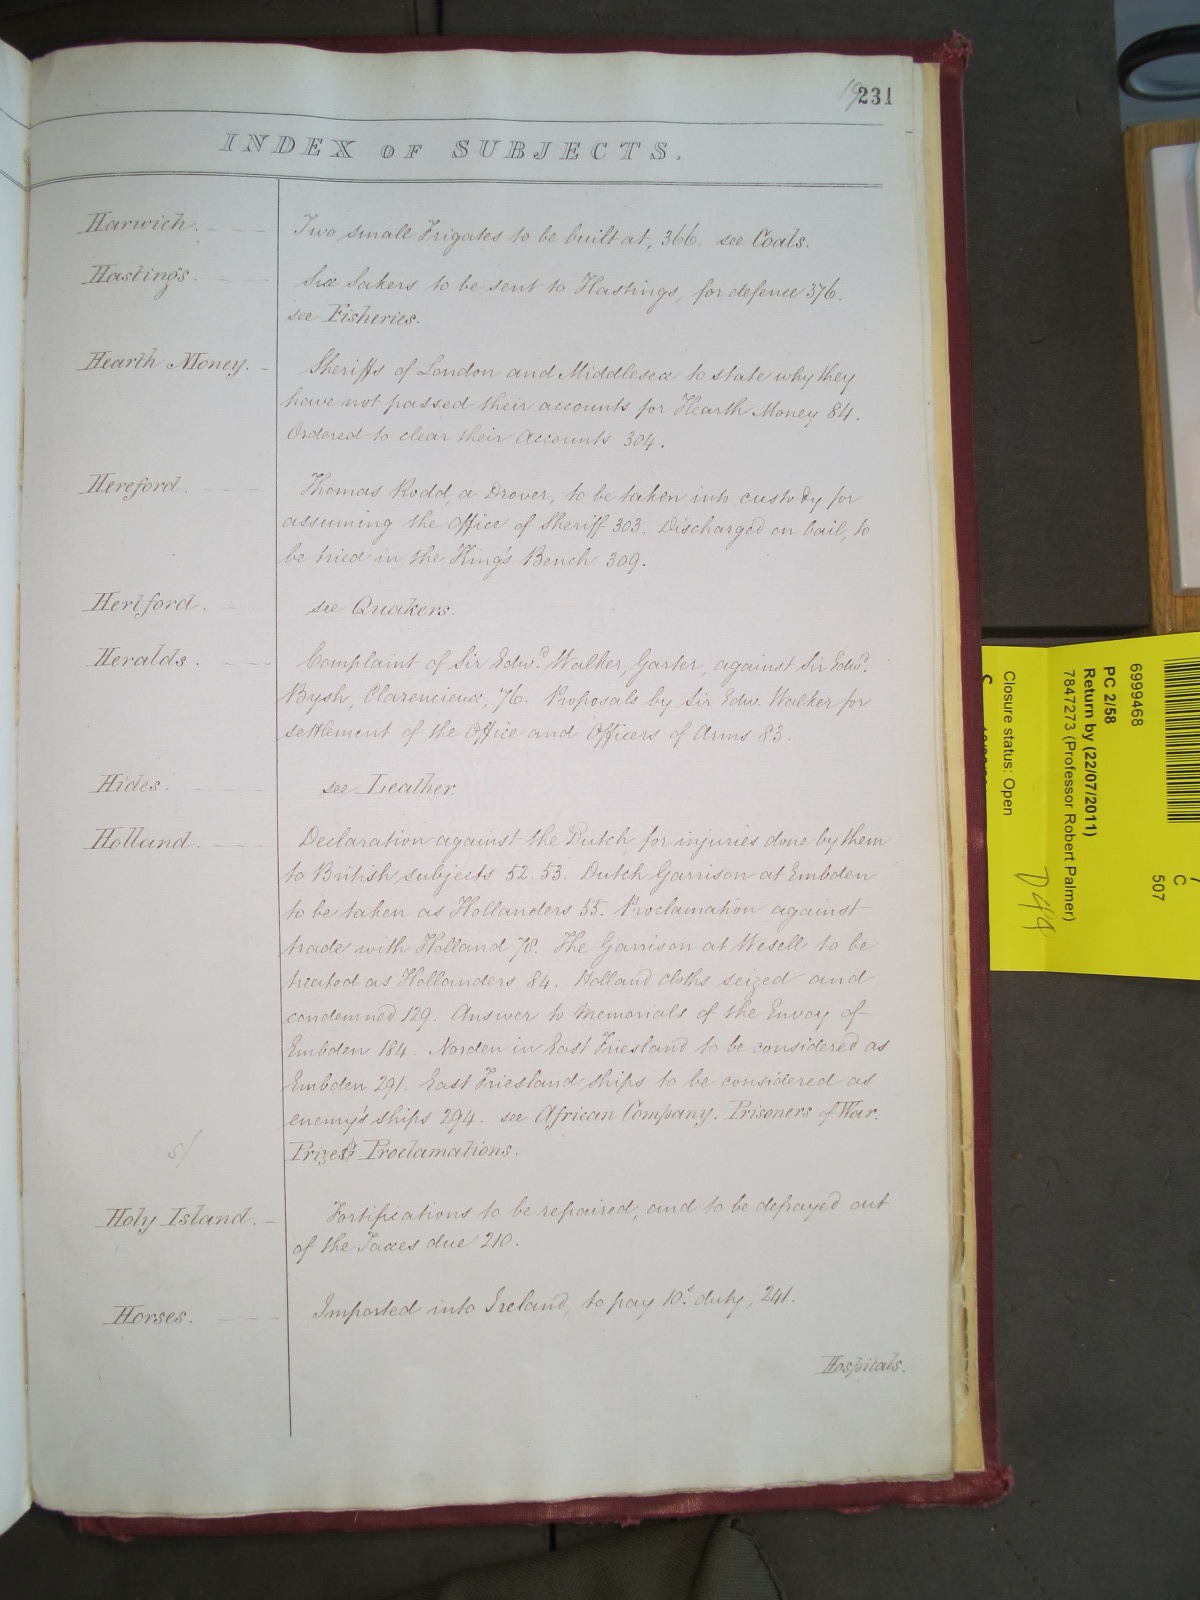 19 231
INDEX OF SUBJECTS.
Harwich. Two small Frigates to be built at, 366. see Coals.
Hastings. Six Sakers to be sent to Hastings, for defence 376.
see Fisheries.
Hearth Money. Sheriffs of London and Middlesex to state why they
have not passed their accounts for Hearth Money 84.
Ordered to clear their Accounts 304.
Hereford. Thomas Rodd, a Drover, to be taken into custody for
assuming the Office of Sheriff 303. Discharged on bail, to
be tried in the King's Bench 309.
Hertford. see Quakers.
Heralds. Complaint of Sir Edwd. Walker, Garter, against Sir Edwd.
Bysh, Clarencieux, 76. Proposals by Sir Edw. Walker for
settlement of the Office and Officers of Arms 83.
Hides. see Leather.
Holland. Declaration against the Dutch for injuries done by them
to British subjects 52. 53. Dutch Garrison at Embden
to be taken as Hollanders 55. Proclamation against
trade with Holland 78. The Garrison at Wesell to be
treated as Hollanders 84. Holland cloths seized and
condemned 129. Answer to Memorials of the Envoy of
Embden 184. Norden in East Friesland to be considered as
Embden 291. East Friesland ships to be considered as
enemy's ships 294. see African Company. Prisoners of War.
Prizes. Proclamations.
s/
Holy Island. Fortifications to be repaired, and to be defrayed out
of the Taxes due 210.
Horses. Imported into Ireland, to pay 10s. duty, 241.
Hospitals.
6999468
PC 2/58
Return by (22/07/2011)
7847273 (Professor Robert Palmer)
Closure status: Open
C
507
D44